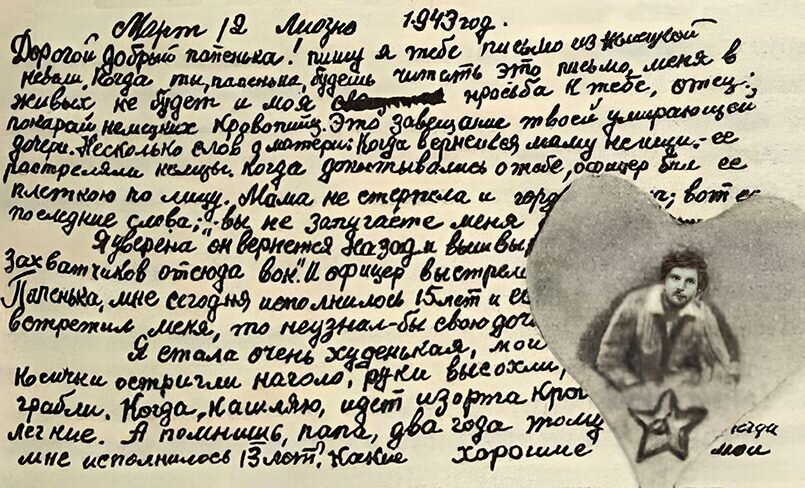 Март 12 Лиозно 1943 год.
Дорогой добрый папенька! пишу я тебе письмо из немецкой
неволи. Когда ты, папенька, будешь читать это письмо, меня в
живых не будет и моя просьба к тебе, отец:
покарай немецких кровопийц. Это завещание твоей умирающей
дочери. Несколько слов о матери: Когда вернешся маму не ищи. – ее
растреляли немцы. Когда допытывались о тебе, офицер бил ее
плеткою по лицу. Мама не стерпела и горд а; вот ее
последние слова; „вы не запугаете меня
Я уверена он вернется назад и вышвы
захватчиков отсюда вон". И офицер выстрел
Папенька, мне сегодня исполнилось 15 лет и ес
встретил меня, то не узнал-бы свою доч
Я стала очень худенькая, мои
косички остригли наголо, руки высохли,
грабли. Когда, кашляю, идет изорта кро
легкие. А помнишь, папа, два года тому когда
мне исполнилось 13 лет? Какие хорошие мои